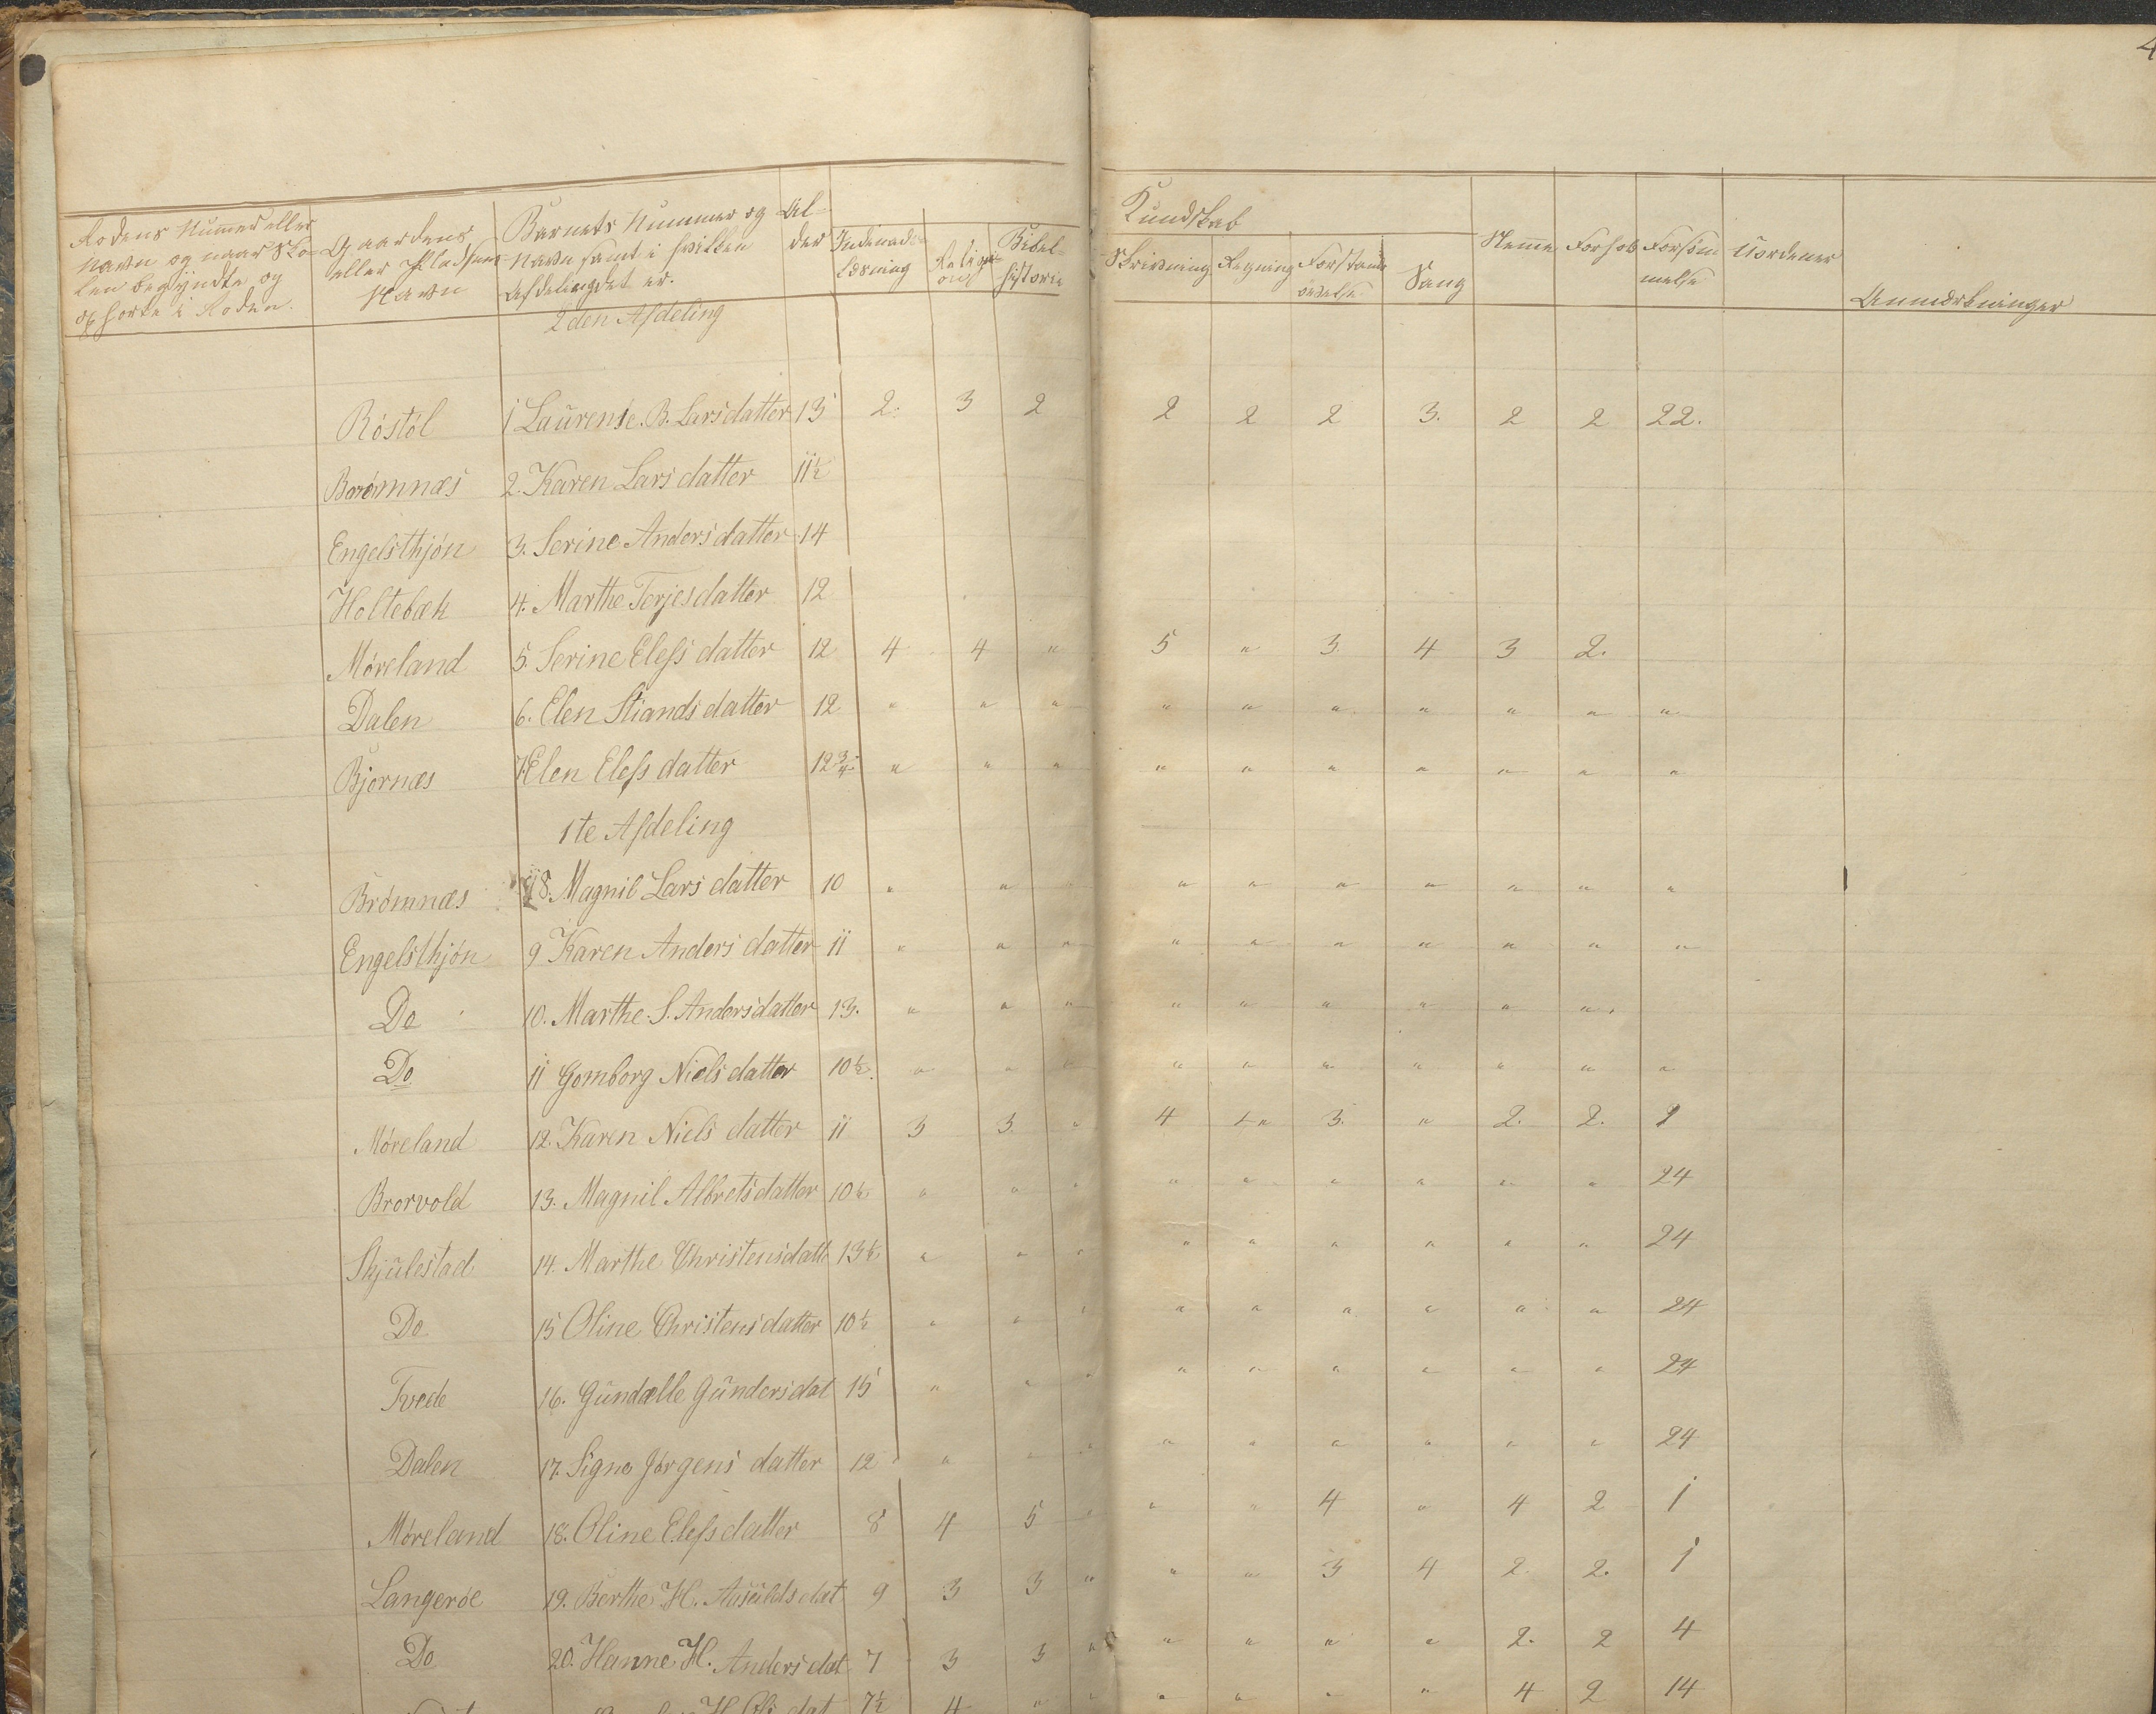 4
Rodens Nummer eller Navn og naar Skolen begyndte og ophørte i Roden.
Gaardens eller Pladsens Navn
Barnets Nummer og Navn samt i hvilken Afdeling det er.
Alder
Indenadslæsning
Religion
Bibelhistorie
Kundskab
Skrivning
Regning
Forstandsøvelse
Sang
Nemme
Forhold
Forsømmelse
Uordener
Anmærkninger
2den Afdeling
Róstól 1 Laurense. B. Larsdatter 13 2. 3 2 2 2 2 3. 2 2 22.
Brómnæs 2. Karen Lars datter 11½
Engelsthjón 3. Serine Anders datter 14
Holtebæk 4. Marthe Terjesdatter 12
Móreland 5. Serine Elefs datter 12 4 4 " 5 " 3. 4 3 2.
Dalen 6. Elen Stiands datter 12 " " " " " " " " " "
Bjornæs 7 Elen Elefs datter 12¾ " " " " " " " " " "
1te Afdeling
Brómnæs 8. Magnil Lars datter 10 " " " " " " " " " "
Engelsthjón 9 Karen Anders datter 11 " " " " " " " " " "
Do 10. Marthe. S. Andersdatter 13. " " " " " " " " "
Do 11 Gomborg Niels datter 10½. " " " " " " " " " "
Móreland 12. Karen Niels datter 11 3 3. " 4 " 3. " 2. 2. 2
Brorvold 13. Magnil Albretsdatter 10½ " " " " " " " " " 24
Skjúlestad 14. Marthe Christensdatt 13½ " " " " " " " " " 24
Do 15 Oline Christensdatter 10½ " " " " " " " " " 24
Tvede 16. Gündælle Gündersdat 15 " " " " " " " " " 24
Dalen 17. Signe Jórgens datter 12 " " " " " " " " " 24
Móreland 18. Oline Elefsdatter 8 4 5 " " " 4 " 4 2 1
Langeróe 19. Berthe H. Asüldsdat 9 3 3 " " " 3 4 2. 2. 1
Do 20. Hanne H. Andersdat 7 3 3 " " " " " 2. 2 4
7½ 4 " " " " " " 4 2 14